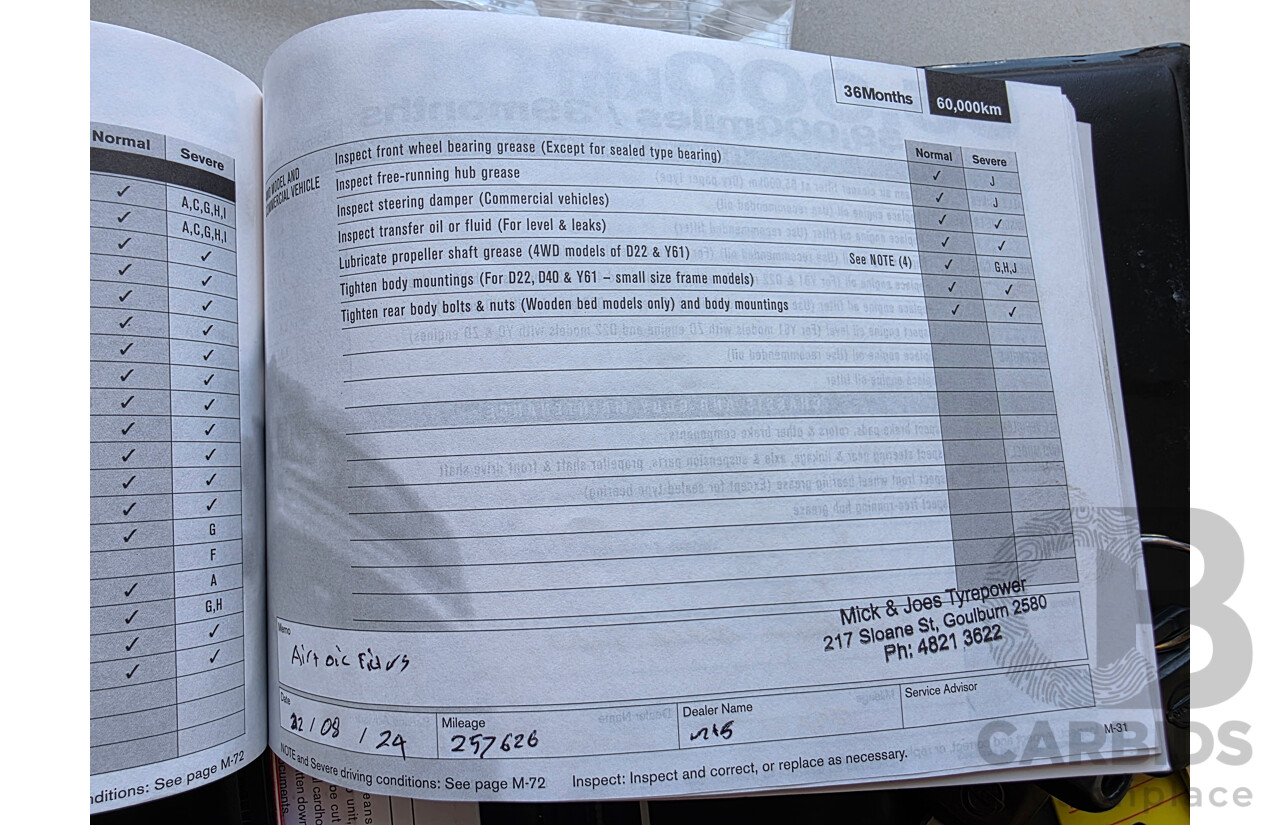 Normal
Severe
✓ A,C,G,H,I
✓ A,C,G,H,I
✓ ✓
✓ ✓
✓ ✓
✓ ✓
✓ ✓
✓ ✓
✓ ✓
✓ ✓
✓ ✓
✓ ✓
✓ ✓
✓ G
F
✓ A
✓ G,H
✓ ✓
✓ ✓
nditions: See page M-72
36Months
60,000km
COMMERCIAL VEHICLE
Normal Severe
Inspect front wheel bearing grease (Except for sealed type bearing) ✓ J
Inspect free-running hub grease ✓ J
Inspect steering damper (Commercial vehicles) ✓ ✓
Inspect transfer oil or fluid (For level & leaks) ✓ ✓
Lubricate propeller shaft grease (4WD models of D22 & Y61) See NOTE (4) ✓ G,H,J
Tighten body mountings (For D22, D40 & Y61 – small size frame models) ✓ ✓
Tighten rear body bolts & nuts (Wooden bed models only) and body mountings ✓ ✓
Mick & Joes Tyrepower
217 Sloane St, Goulburn 2580
Ph: 4821 3622
Memo
Date
22/08/24
Mileage
257626
Dealer Name
Service Advisor
NOTE and Severe driving conditions: See page M-72
Inspect: Inspect and correct, or replace as necessary.
M-31
CB
CARBIDS